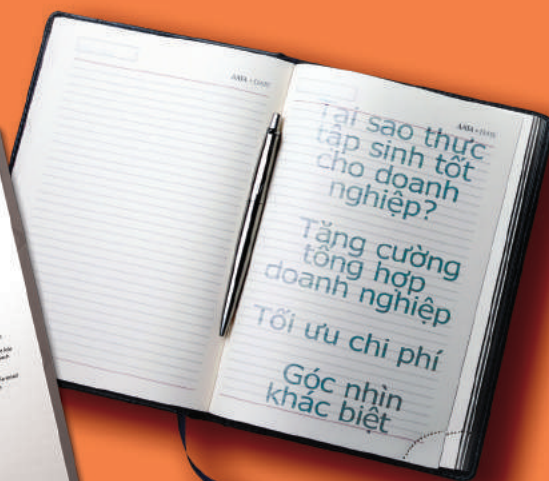 Tại sao thực
tập sinh tốt
cho doanh
nghiệp?
Tăng cường
tổng hợp
doanh nghiệp
Tối ưu chi phí
Góc nhìn
khác biệt